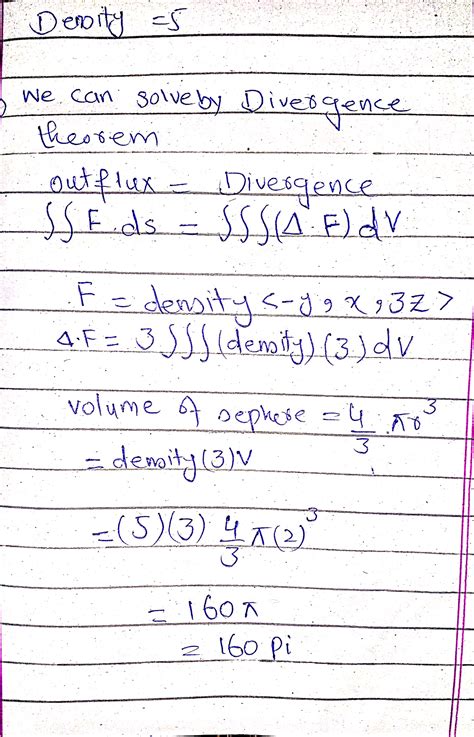 Density = 5
we can solve by Divergence
theorem
outflux = Divergence
∫∫ F. ds = ∫∫∫(Δ. F) dV
F = density <-y, x, 3z>
Δ.F = 3 ∫∫∫ (density) (3) dV
volume of sephere = 4/3 πr³
= density (3) V
= (5) (3) 4/3 π (2)³
= 160 π
= 160 Pi